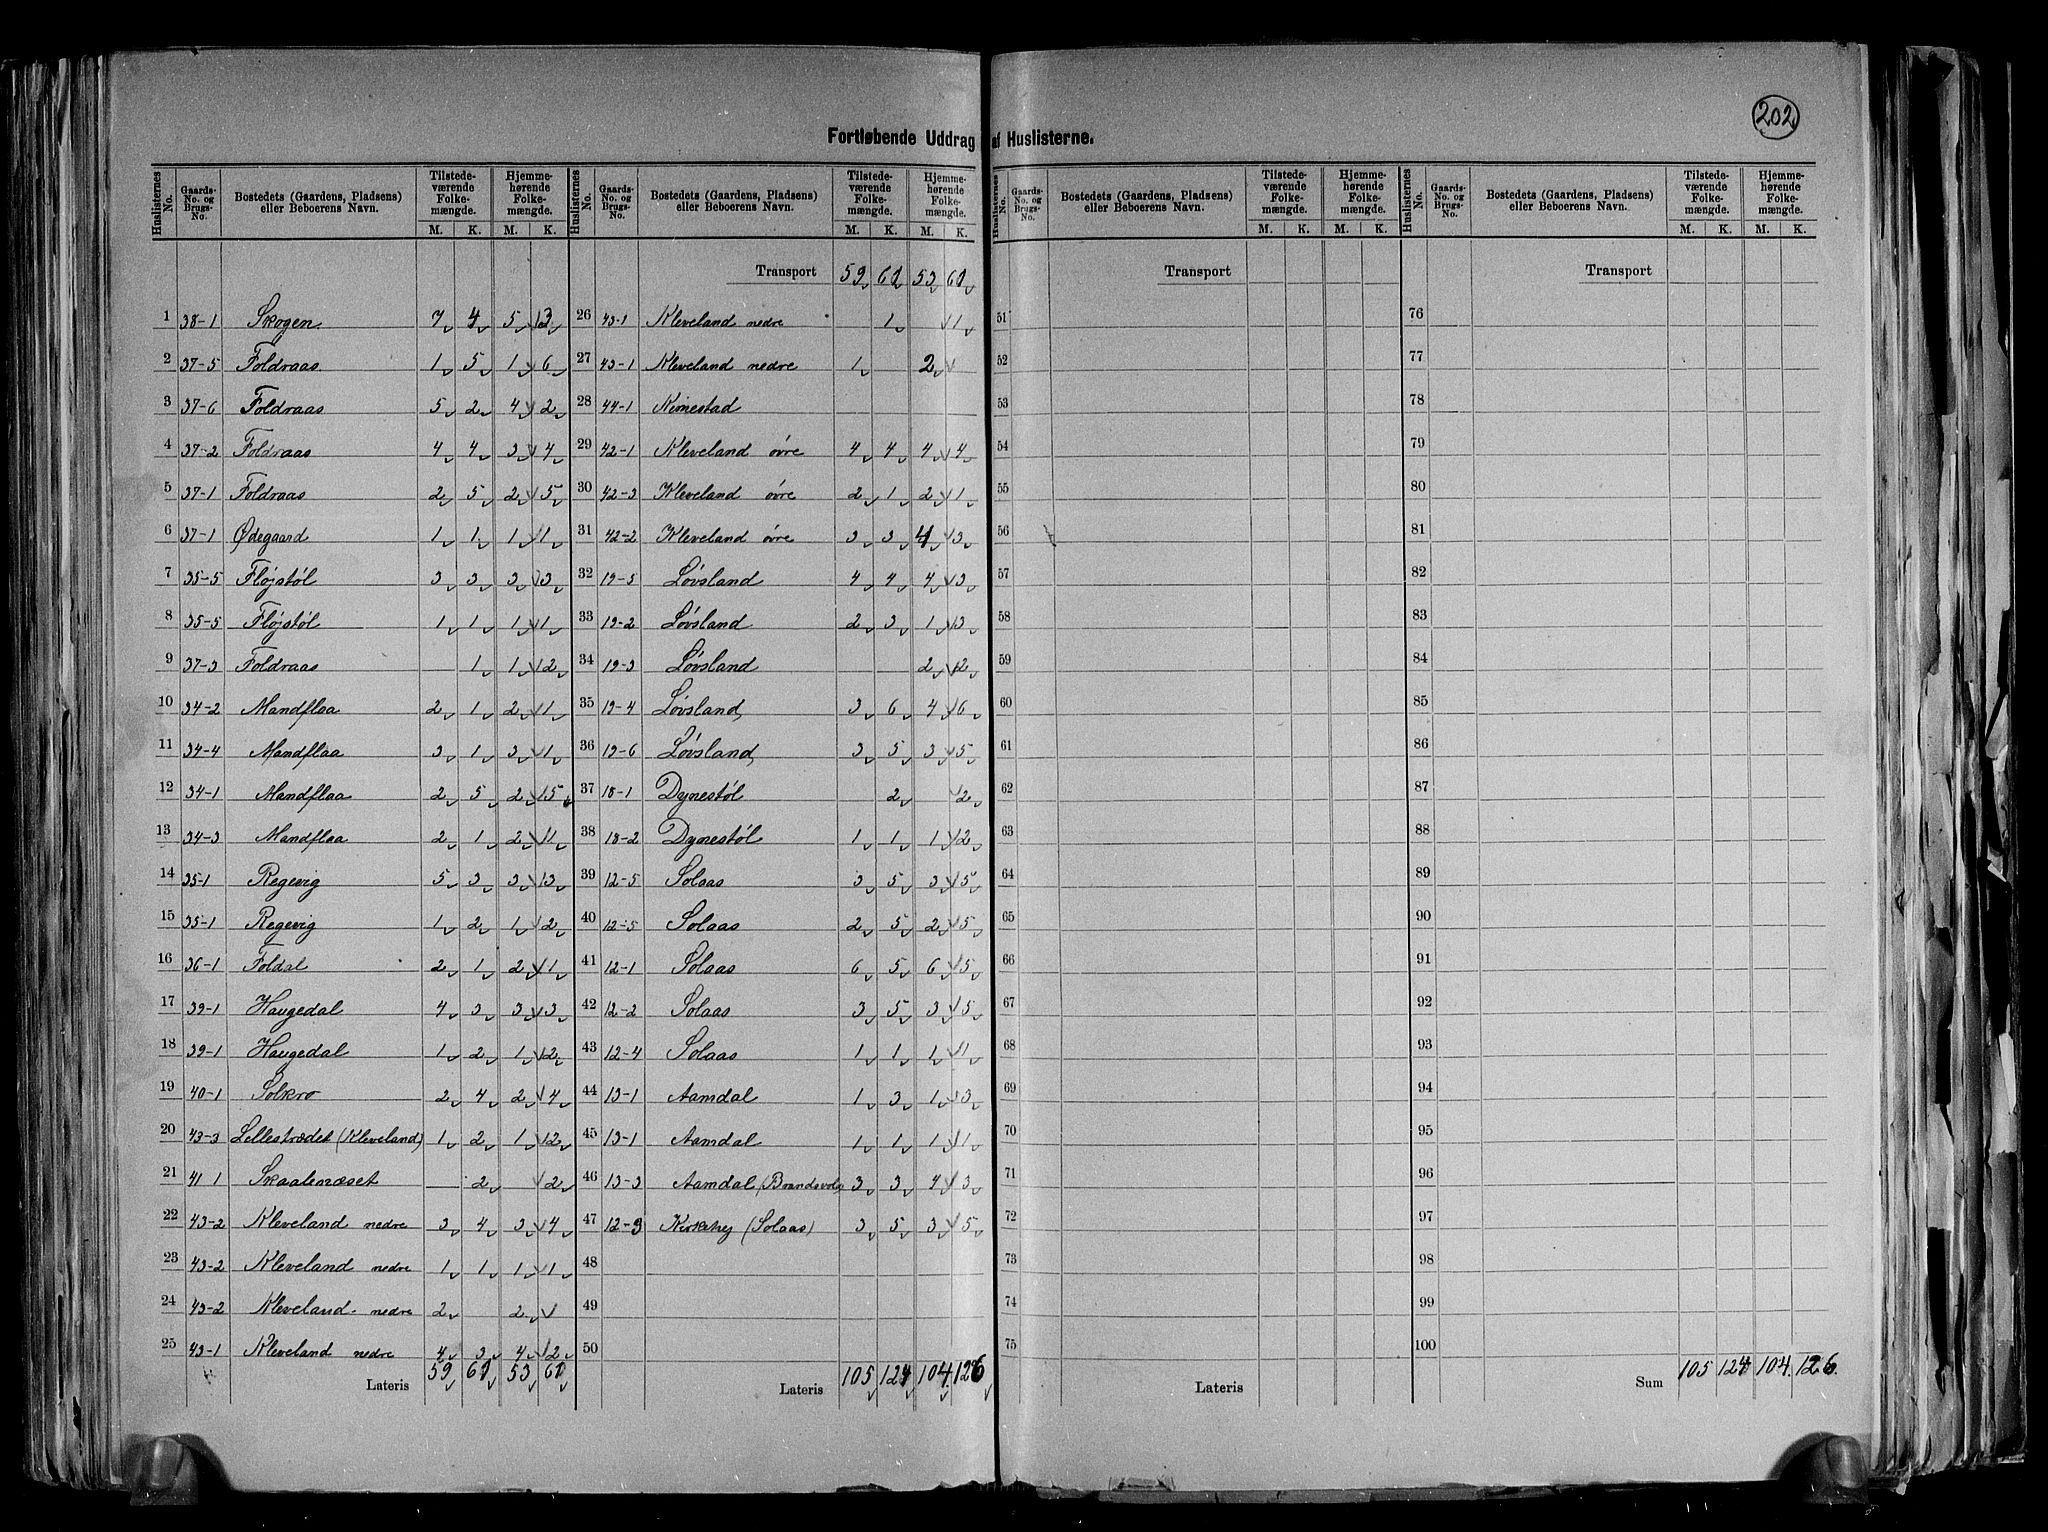 202
Fortløbende Uddrag af Huslisterne.
Huslisternes No. | Gaards-No. og Brugs-No. | Bostedets (Gaardens, Pladsens) eller Beboerens Navn. | Tilstedeværende Folkemængde. M. K. | Hjemmehørende Folkemængde. M. K.
1 38-1 Skogen 7 4 5 3
2 37-5 Foldraas 1 5 1 6
3 37-6 Foldraas 5 2 4 2
4 37-2 Foldraas 4 4 3 4
5 37-1 Foldraas 2 5 2 5
6 37-1 Ødegaard 1 1 1 1
7 35-5 Fløjstøl 3 3 3 3
8 35-5 Fløjstøl 1 1 1 1
9 37-3 Foldraas 1 1 2
10 34-2 Mandflaa 2 1 2 1
11 34-4 Mandflaa 3 1 3 1
12 34-1 Mandflaa 2 5 2 5
13 34-3 Mandflaa 2 1 2 1
14 35-1 Regevig 5 3 3 3
15 35-1 Regevig 1 2 1 2
16 36-1 Foldal 2 1 2 1
17 39-1 Haugedal 4 3 3 3
18 39-1 Haugedal 1 2 1 2
19 40-1 Solkro 2 4 2 4
20 43-3 Lellestrædet (Kleveland) 1 2 1 2
21 41 1 Skaalenæset 2 2
22 43-2 Kleveland nedre 3 4 3 4
23 43-2 Kleveland nedre 1 1 1 1
24 43-2 Kleveland nedre 2 2
25 43-1 Kleveland nedre 4 3 4 2
Lateris 59 61 53 61
Huslisternes No. | Gaards-No. og Brugs-No. | Bostedets (Gaardens, Pladsens) eller Beboerens Navn. | Tilstedeværende Folkemængde. M. K. | Hjemmehørende Folkemængde. M. K.
Transport 59 61 53 61
26 43-1 Kleveland nedre 1 1
27 43-1 Kleveland nedre 1 2
28 44-1 Kimestad
29 42-1 Kleveland øvre 4 4 4 4
30 42-3 Kleveland øvre 2 1 2 1
31 42-2 Kleveland øvre 3 3 4 3
32 19-5 Løvsland 4 4 4 3
33 19-2 Løvsland 2 3 1 3
34 19-3 Løvsland 2 2
35 19-4 Løvsland 3 6 4 6
36 19-6 Løvsland 3 5 3 5
37 18-1 Dynestøl 2 2
38 18-2 Dynestøl 1 1 1 2
39 12-5 Solaas 3 5 3 5
40 12-5 Solaas 2 5 2 5
41 12-1 Solaas 6 5 6 5
42 12-2 Solaas 3 5 3 5
43 12-4 Solaas 1 1 1 1
44 13-1 Aamdal 1 3 1 3
45 13-1 Aamdal 1 1 1 1
46 13-3 Aamdal (Brandsvola) 3 3 4 3
47 12-3 Kirkehej (Solaas) 3 5 3 5
48
49
50
Lateris 105 124 104 126
Huslisternes No. | Gaards-No. og Brugs-No. | Bostedets (Gaardens, Pladsens) eller Beboerens Navn. | Tilstedeværende Folkemængde. M. K. | Hjemmehørende Folkemængde. M. K.
Transport
51
52
53
54
55
56
57
58
59
60
61
62
63
64
65
66
67
68
69
70
71
72
73
74
75
Lateris
Huslisternes No. | Gaards-No. og Brugs-No. | Bostedets (Gaardens, Pladsens) eller Beboerens Navn. | Tilstedeværende Folkemængde. M. K. | Hjemmehørende Folkemængde. M. K.
Transport
76
77
78
79
80
81
82
83
84
85
86
87
88
89
90
91
92
93
94
95
96
97
98
99
100
Sum 105 124 104 126